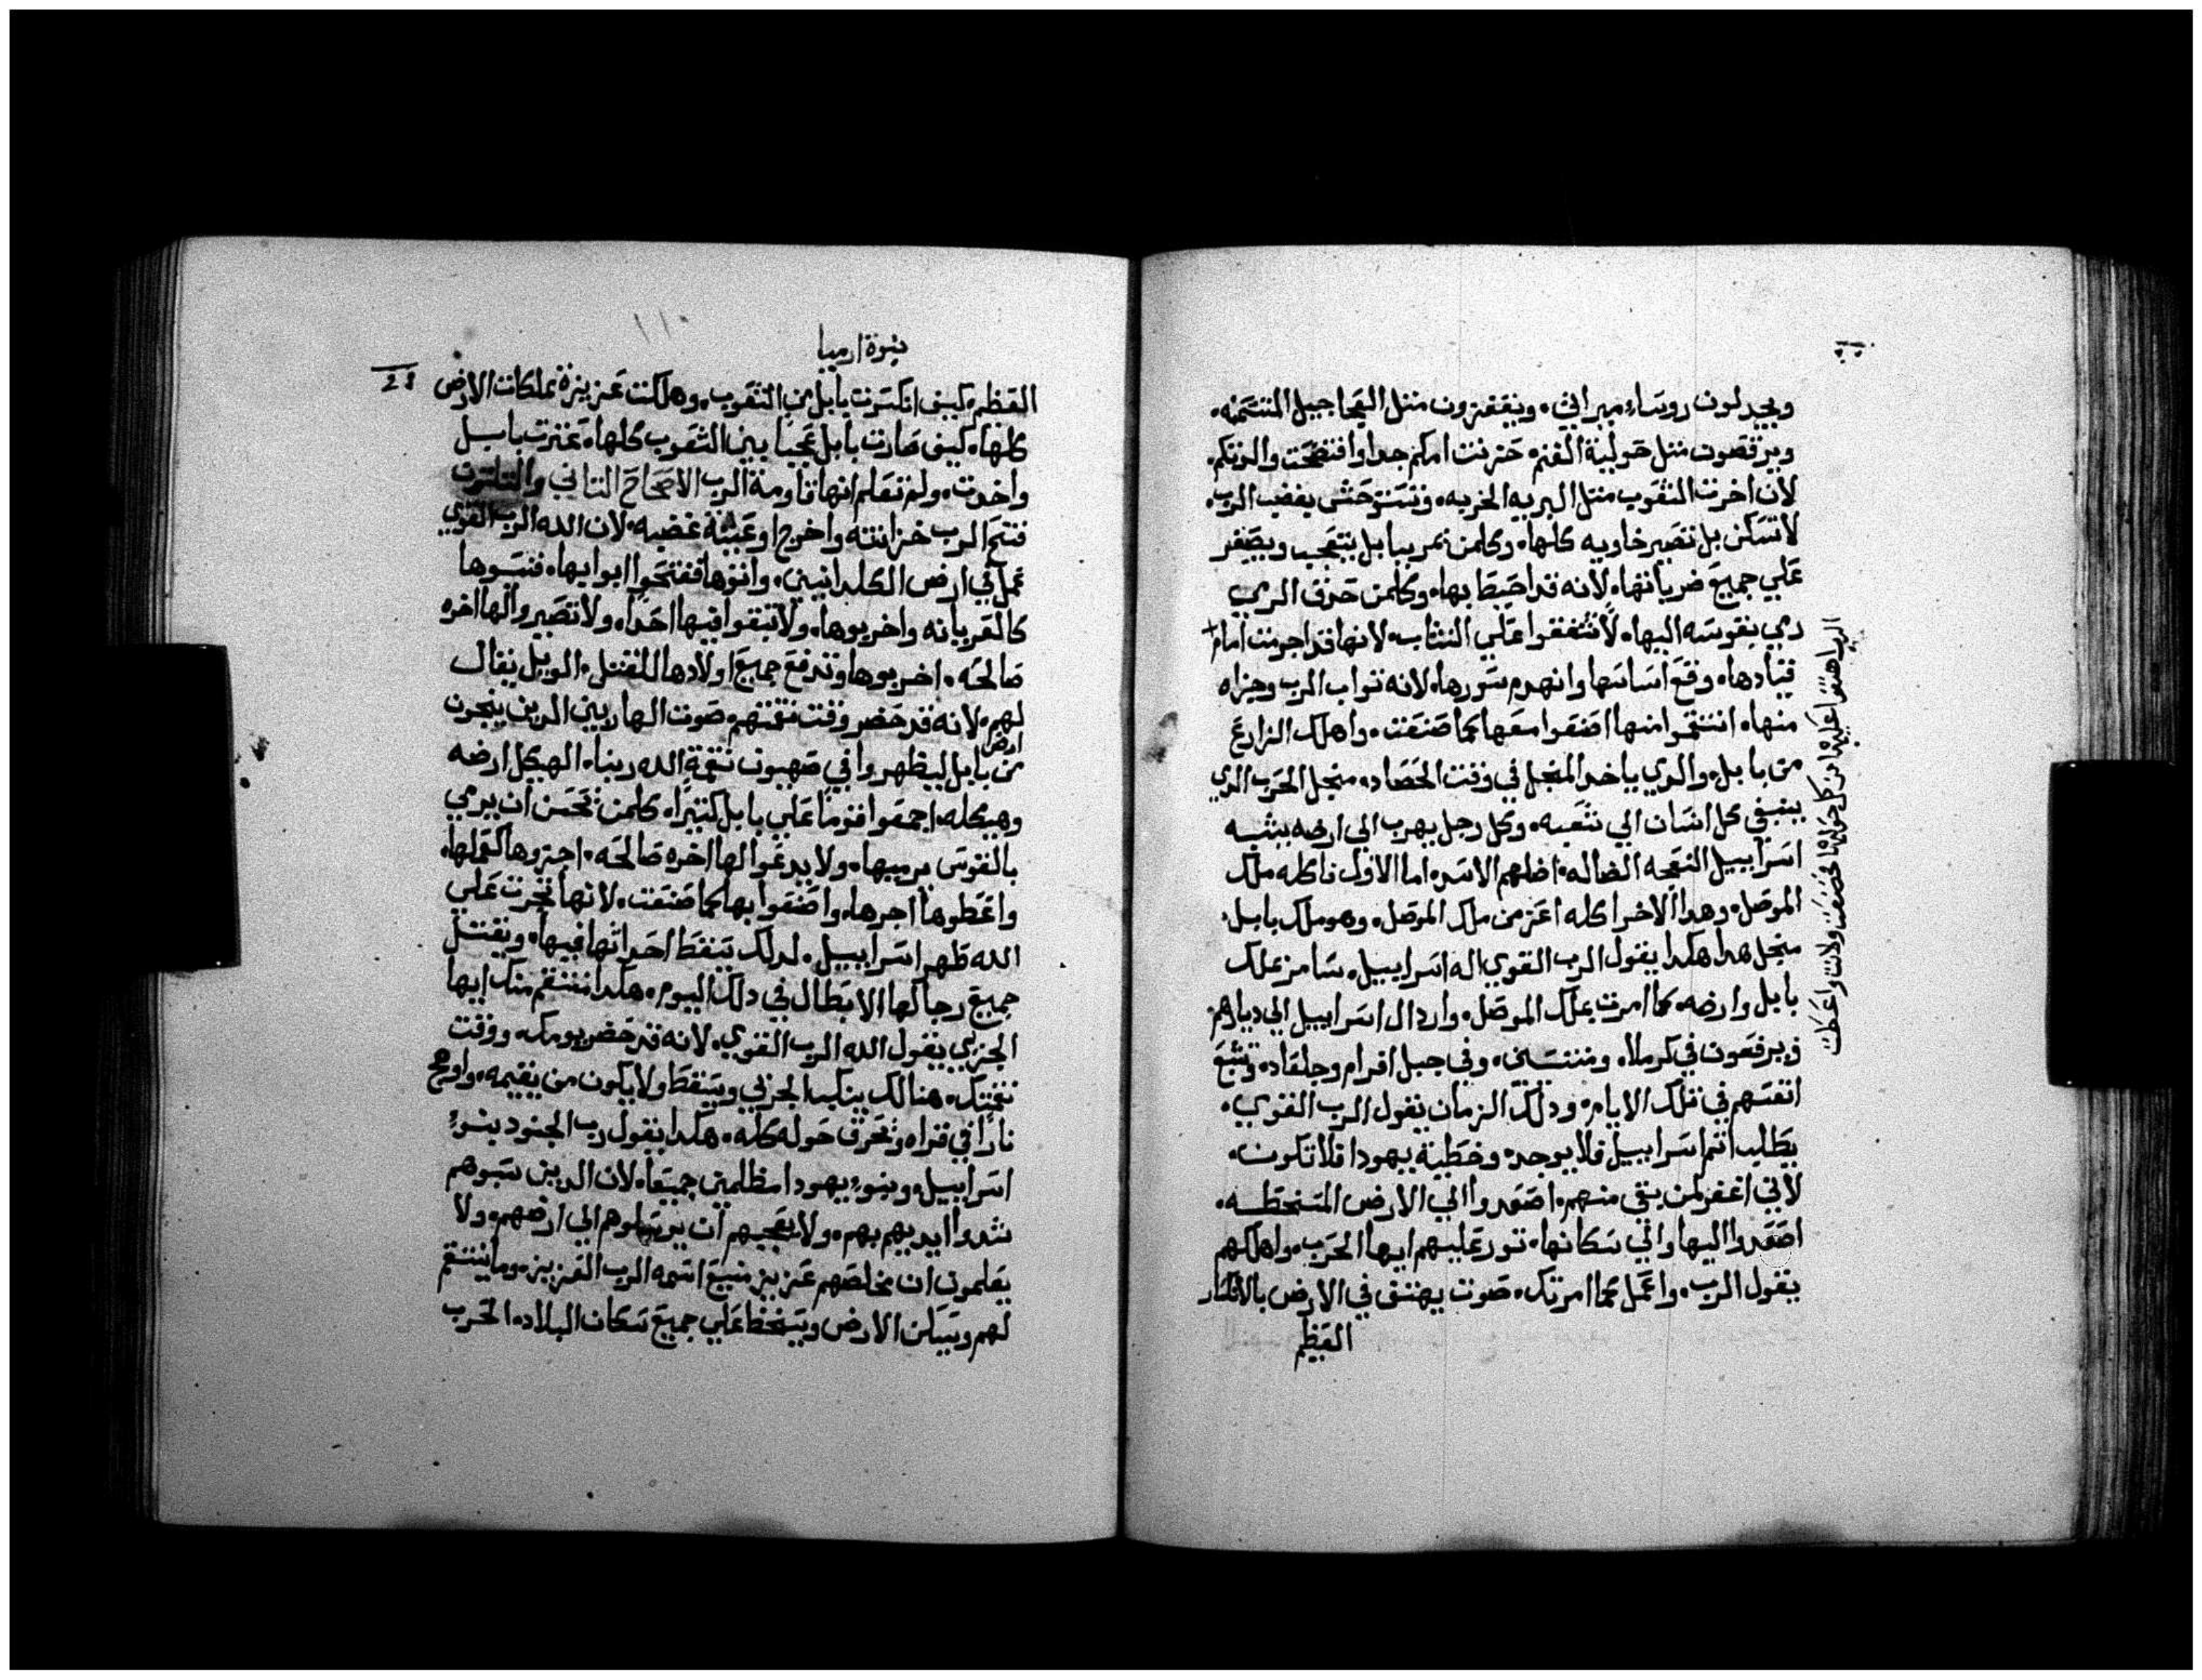 ويجدلون روساء ميراثي. ويقفزون مثل العجاجيل المسمنه.
ويرقصون مثل حولية الغنم. حزنت امكم جدا وافتضحت والدتكم.
لان اخرت الشعوب مثل البريه الخربه. وتستوحش بغضب الرب.
لا تسكن بل تصير خاويه كلها. وكلمن يمر ببابل يتعجب ويصفر
علي جميع ضرباتها. لانه قد احيط بها. وكلمن حدق الرمي
رمي بقوسه اليها. لا تشفقوا علي النشاب. لانها قد اجرمت امام
قيادها. وقع اساسها وانهدم سورها. لانه ثواب الرب وجزاه
منها. انتقموا منها اصنعوا معها كما صنعت. واهلك الزارع
من بابل. والدي ياخد المنجل في وقت الحصاد. منجل الحرب الدي
ينبغي كل انسان الي شعبه. وكل رجل يهرب الي ارضه بيشبه
اسراييل النعجه الضاله. اضلهم الاسد. اما الاول فاكله ملك
الموصل. وهدا الاخر اكله اعز من ملك الموصل. وهو ملك بابل.
منجل هدا هكدا يقول الرب القوي اله اسراييل. سامر بملك
بابل وارضه. كما امرت بملك الموصل. وارد ال اسراييل الي ديارهم.
فيرفعون في كرملا. ومتنسنى. وفي جبل افرام وجلعاد. وتشبع
انفسهم في تلك الايام. ودلك الزمان يقول الرب القوي.
يطلب اتم اسراييل فلا يوجد. وخطية يهودا فلا تكون.
لاني اغفر لمن بقي منهم. اصعدوا الي الارض المسخطه.
اصعدوا اليها والي سكانها. تور عليهم ايها الحرب. واهلكهم
يقول الرب. واعمل كما امرتك. صوت يهتف في الارض بالانكسار
العظيم
الرب اهتفوا عليها من كل حولها خضعت ولانت واعطت
نبوة ارميا
العظيم. كيف انكسرت بابل من الشعوب. وهلكت عزيزة مملكات الارض
كلها. كيف صارت بابل عجبا بين الشعوب كلها. عثرت بابل
واخدت. ولم تعلم انها قاومة الرب الاصحاح التاني والتلتون
فتح الرب خزانته واخرج اوعية غضبه. لان الله الرب القوي
عمل في ارض الكلدانيين. واتوها ففتحوا ابوابها. فنسوها
كالعريانه واخربوها. ولا تبقوا فيها احدا. ولا تصيروا لها اخره
صالحه. اخربوها وتدفع جميع اولادها للقتل. الويل يقال
لهم. لانه قد حضر وقت نقمتهم. صوت الهاربين الدين ينجون
من ارض بابل ليظهروا في صهيون نقمة الله ربنا. الهيكل ارضه
وهيكله. اجمعوا قوما علي بابل كتيرا. كلمن يحسن ان يرمي
بالقوس يرميها. ولا يدعوا لها اخره صالحه. اجزوها كعملها.
واعطوها اجرها. واصنعوا بها كما صنعت. لانها تجرت علي
الله ظهر اسراييل. لدلك يسقط احداثها فيها. ويقتتل
جميع رجالها الابطال في دلك اليوم. هكدا منتقم منك ايها
الجزبي يقول الله الرب القوي. لانه قد حضر يومك. ووقت
نقمتك. هنالك ينكب الجزبي ويسقط ولا يكون من يقيمه. واوجج
نارا في قراه وتحرق حوله كله. هكدا يقول رب الجنود بنو
اسراييل. وبنو يهودا مظلمين جميعا. لان الدين سبوهم
شدوا ايديهم بهم. ولا يعجبهم ان يرسلوهم الي ارضهم. ولا
يعلمون ان مخلصهم عزيز منيع اسمه الرب العزيز. وما ينتقم
لهم ويبتلي الارض ويسخط علي جميع سكان البلاد. الحرب